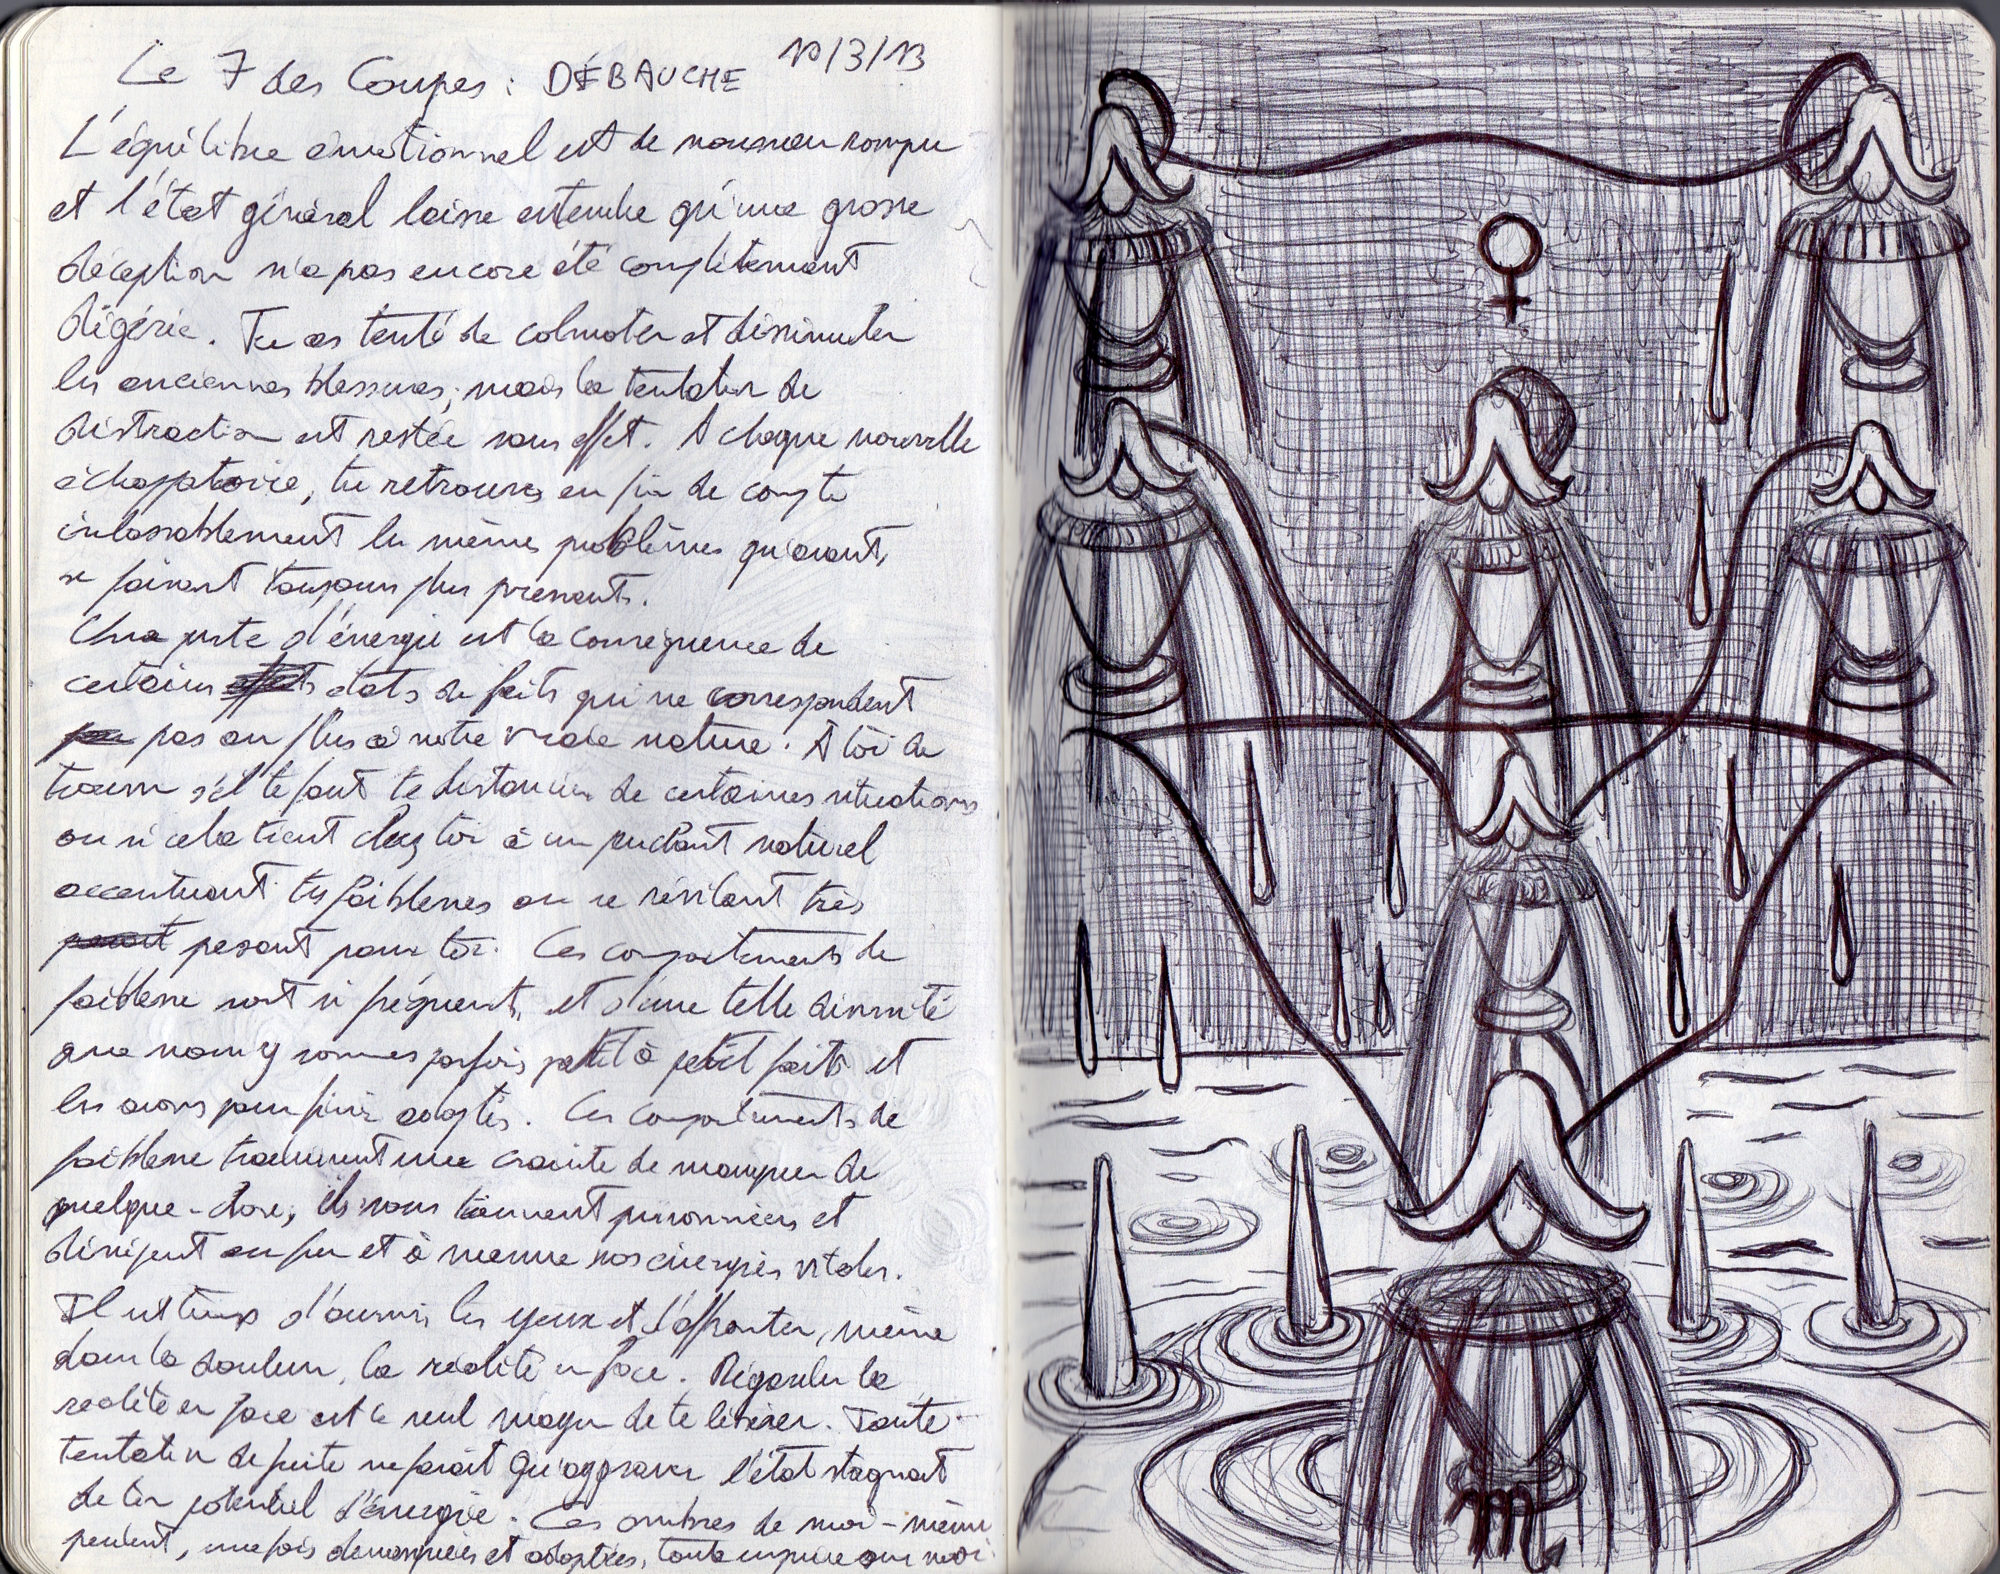 Le 7 des Coupes : DÉBAUCHE 10/3/13
L'équilibre émotionnel est de nouveau rompu
et l'état général laisse entendre qu'une grosse
déception n'a pas encore été complètement
digérée. Tu as tenté de colmater et dissimuler
les anciennes blessures, mais la tentative de
distraction est restée sans effet. A chaque nouvelle
échappatoire, tu retrouves en fin de compte
inlassablement les mêmes problèmes qu'avant,
se faisant toujours plus pressants.
Une perte d'énergie est la conséquence de
certains états de faits qui ne correspondent
pas ou plus à notre vraie nature. A toi de
trouver s'il te faut te distancier de certaines situations
ou si cela tient chez toi à un penchant naturel
accentuant tes faiblesses ou se révélant très
pesant pour toi. Ces comportements de
faiblesse sont si fréquents, et d'une telle diversité
que nous y sommes parfois petit à petit faits et
les avons pour finir adoptés. Ces comportements de
faiblesse trahissent une crainte de manquer de
quelque-chose, ils nous tiennent prisonniers et
dirigent au fur et à mesure nos énergies vitales.
Il est temps d'ouvrir les yeux et d'affronter, même
dans la douleur, la réalité en face. Regarder la
réalité en face est le seul moyen de te libérer. Toute
tentative de fuite ne ferait qu'aggraver l'état stagnant
de ton potentiel d'énergie. Ces ombres de moi-même
perdent, une fois démasquées et adoptées, toute emprise sur moi.
♀
♏